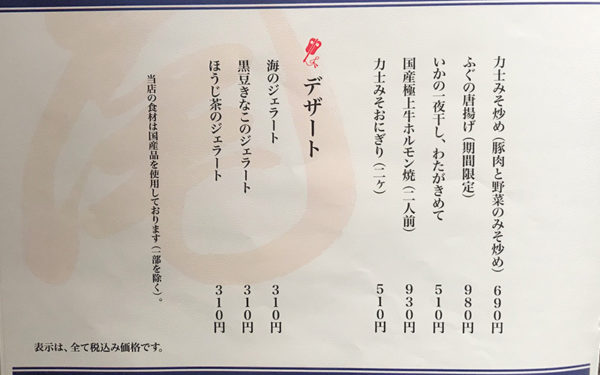 力士みそ炒め（豚肉と野菜のみそ炒め） 690円
ふぐの唐揚げ（期間限定） 980円
いかの一夜干し、わたがきめて 510円
国産極上牛ホルモン焼（二人前） 930円
力士みそおにぎり（二ヶ） 510円
デザート
海のジェラート 310円
黒豆きなこのジェラート 310円
ほうじ茶のジェラート 310円
当店の食材は国産品を使用しております（一部を除く）。
表示は、全て税込み価格です。